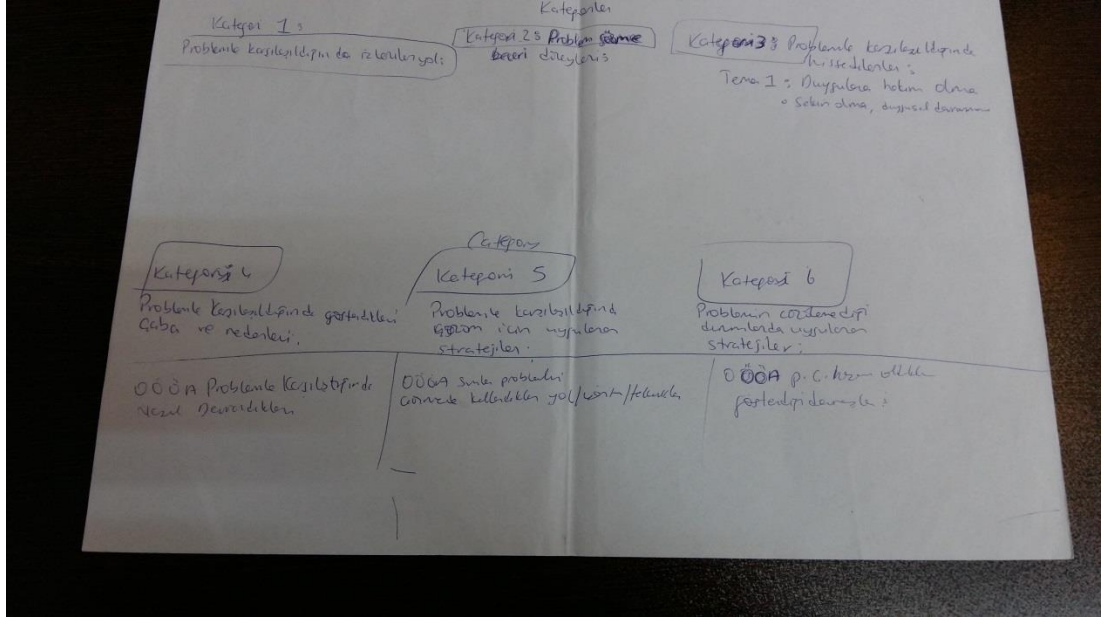 Kategoriler
Kategori 1:
Problemle karşılaşıldığında izlenilen yol:
Kategori 2: Problem çözme
beceri düzeyleri:
Kategori 3: Problemle karşılaşıldığında
hissedilenler:
Tema 1: Duygulara hakim olma
• Sakin olma, duygusal davranma
Category
Kategori 4
Problemle karşılaşıldığında gösterdikleri
çaba ve nedenleri.
Kategori 5
Problemle karşılaşıldığında
çözüm için uygulanan
stratejiler:
Kategori 6
Problemin çözülemediği
durumlarda uygulanan
stratejiler:
OÖÖA Problemle Karşılaştığında
Nasıl Davrandıkları
OÖÖA problemleri
çözmede kullandıkları yol/yöntem/teknikler
OÖÖA p.ç.
gösterdiği davranışlar: